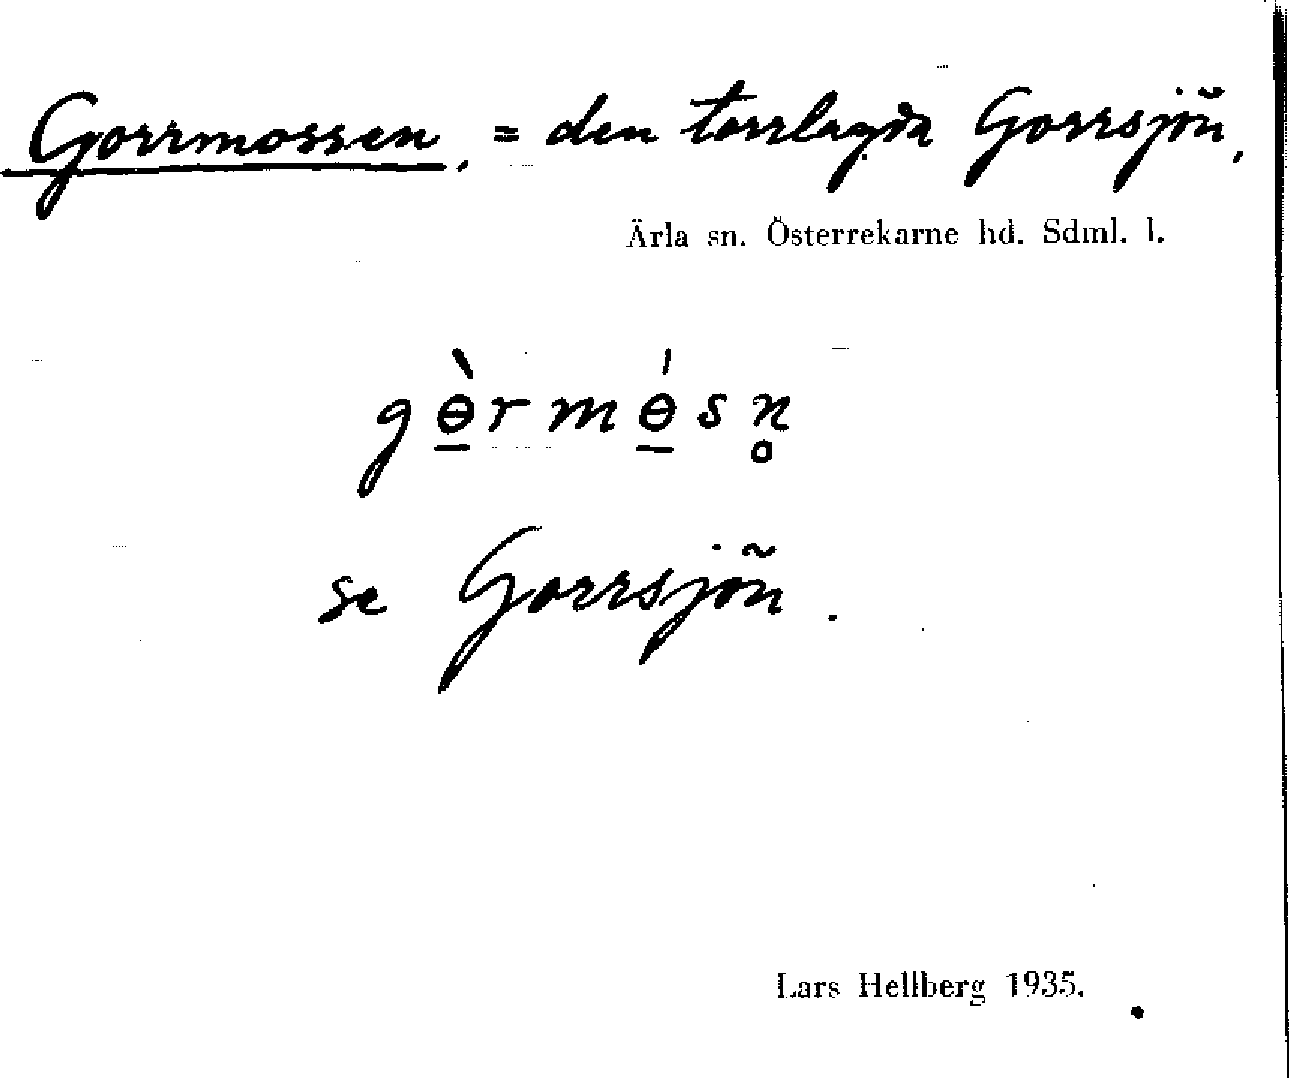 Gorrmossen, = den torrlagda Gorrsjön,
Ärla sn. Österrekarne hd. Sdml. l.
gɵ̠̀rmɵ̠́sn̥
se Gorrsjön.
Lars Hellberg 1935.